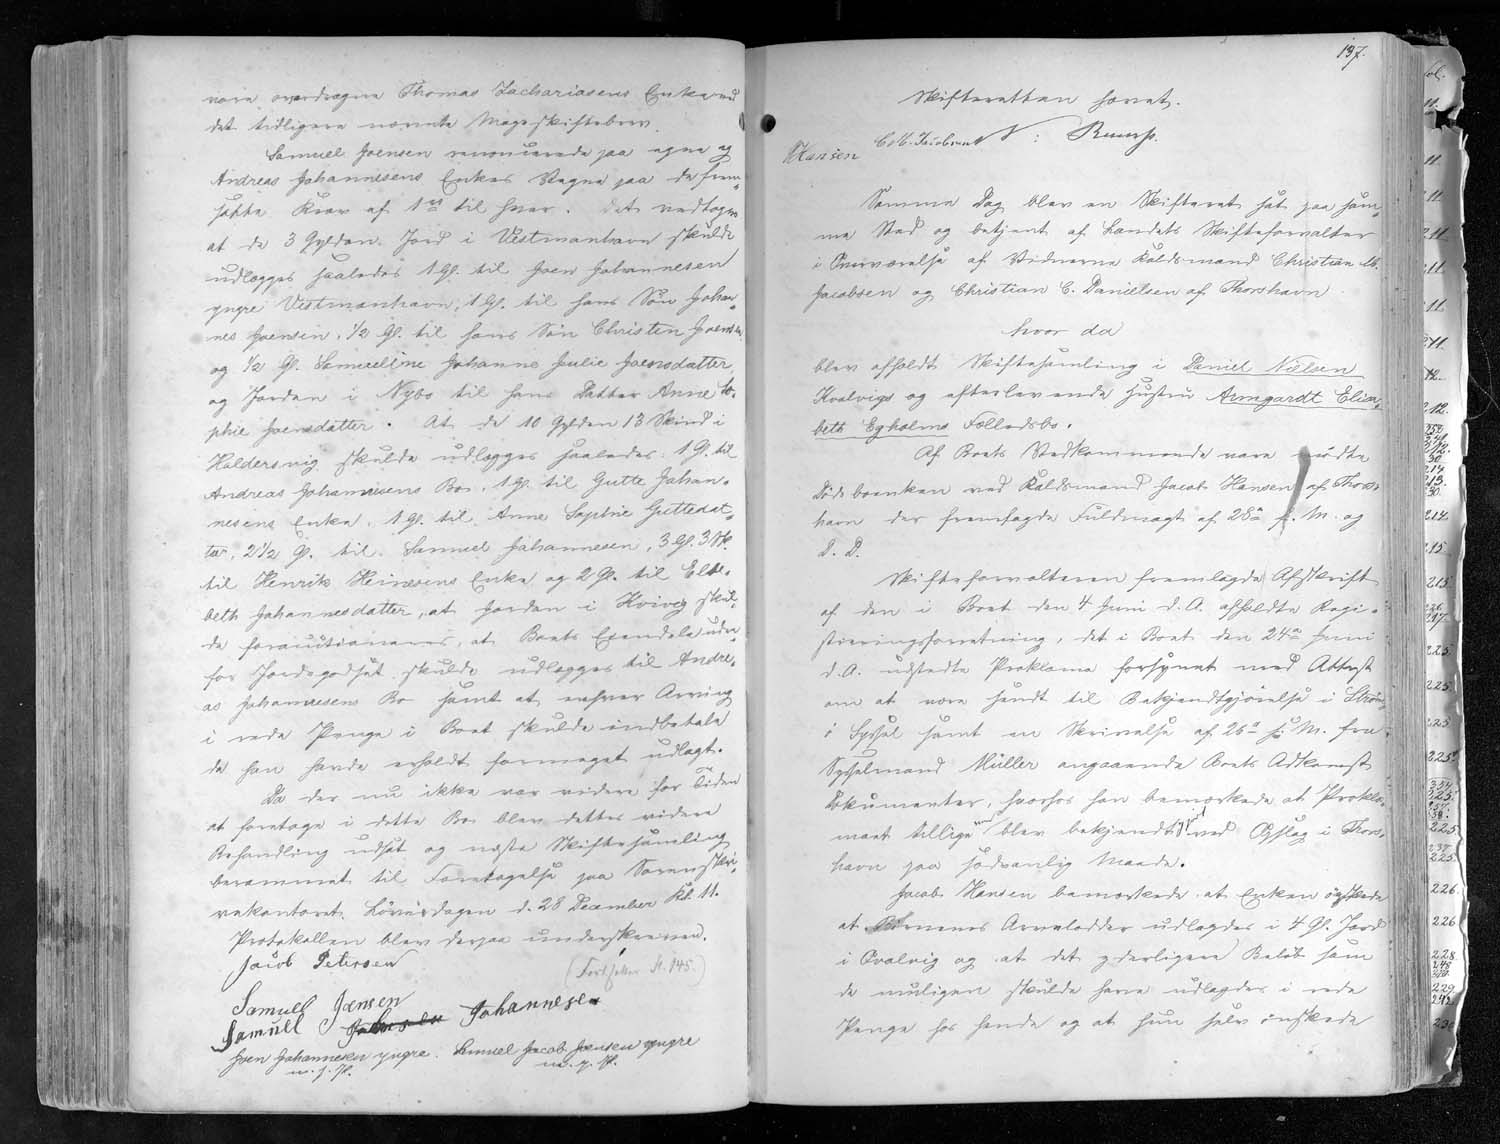 være overdragne Thomas Zachariasens Enke ved
det tidligere nævnte Mageskiftebrev.
Samuel Joensen renoncerede paa egne og
Andreas Johannesens Enkes Vegne paa de frem-
satte Krav af 1 til hver. Det vedtoges
at de 3 Gylden Jord i Vestmanhavn skulde
udlægges saaledes 1 Gl. til Joen Johannesen
yngre Vestmanhavn, 1 Gl. til hans Søn Johan-
nes Joensen, 1/2 Gl. til hans Søn Christen Joensen
og 1/2 Gl. Samueline Johanne Julie Joensdatter
og Jorden i Nybo til hans Datter Anne So-
phie Joensdatter. At de 10 Gylden 13 Skind i
Haldersvig skulde udlægges saaledes: 1 Gl. til
Andreas Johannesens Bo, 1 Gl. til Gutte Johan-
nesens Enke, 1 Gl. til Anne Sophie Guttedat-
ter, 2 1/2 Gl. til Samuel Johannesen, 3 Gl. 3 Sk.
til Henrik Heinesens Enke og 2 Gl. til Elsbe-
beth Johannesdatter, at Jorden i Kvivig skul-
de forauctioneres, at Boets Eiendele uden-
for Jordegodset skulde udlægges til Andre-
as Johannesens Bo samt at enhver Arving
i rede Penge i Boet skulde indbetale
de han havde erholdt formeget udlagt.
Da der nu ikke var videre for Tiden
at foretage i dette Bo blev dettes videre
Behandling udsat og næste Skiftesamling
berammet til Foretagelse paa Sorenskri-
verkontoret Løverdagen d. 28 December Kl. 11.
Protokollen blev derpaa underskreven.
Jacob Petersen (Fortsættes S. 145.)
Samuel Jænsen
Samuel Johannesen
Joen Johannesen yngre. Samuel Jacob Joensen yngre
m. f. P. m. f. P.
137.
Skifteretten hævet.
C. M. Jacobsen
J Hansen
Samme Dag blev en Skifteret sat paa sam-
me Sted og betjent af Landets Skifteforvalter
i Overværelse af Vidnerne Raldsmand Christian M.
Jacobsen og Christian C. Danielsen af Thorshavn
hvor da
blev afholdt Skiftesamling i Daniel Nielsen
Kvalvigs og efterlevende Hustru Armgardt Elisa-
beth Egholms Fælledsbo.
Af Boets Vedkommende vare mødte
Dødsboenken ved Raldsmand Jacob Hansen af Thors-
havn der fremlagde Fuldmagt af 28de f. M. og
D. D.
Skifteforvalteren fremlagde Afskrift
af den i Boet den 4 Juni d. A. afholdte Regi-
streringsforretning, det i Boet den 24de Juni
d. A. udstedte Proklama forsynet med Attest
om at være sendt til Bekjendtgjørelse i Strøm-
ø Syssel samt en Skrivelse af 26de f. M. fra
Sysselmand Müller angaaende Boets Adkomst
Dokumenter, hvorhos han bemærkede at Prokla-
maet tillige var blev bekjendtgjort ved Opslag i Thors-
havn paa sædvanlig Maade.
Jacob Hansen bemærkede at Enken ønskede
at Børnenes Arvelodder udlagdes i 4 Gl. Jord
i Qvalvig og at det yderligere Beløb som
de muligen skulde have udlagdes i rede
Penge hos hende og at hun selv ønskede